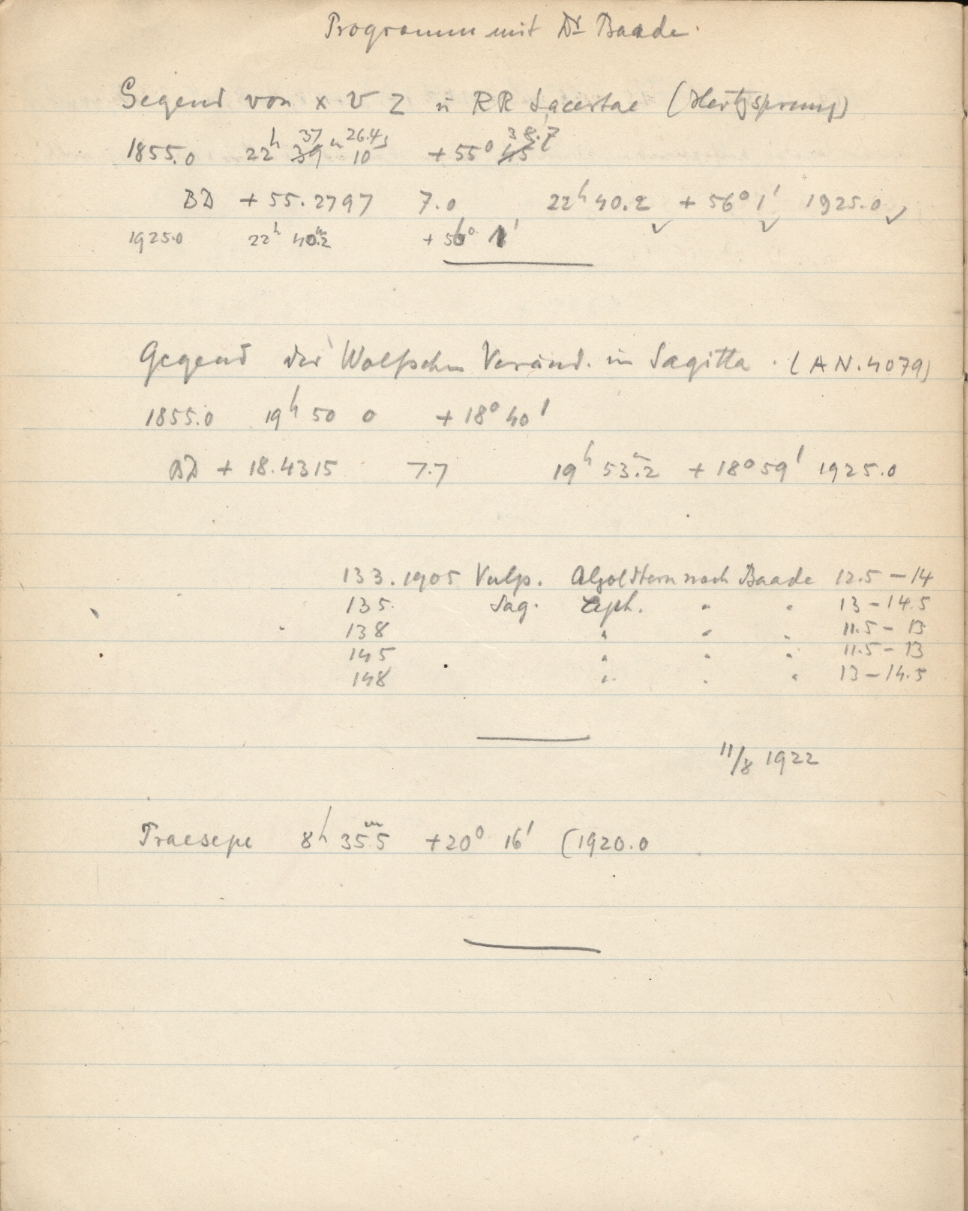 Programm mit Dr Baade.
Gegend von X V Z u RR Lacertae (Hertzsprung)
37 26.4s 38.7'
1855.0 22h 39m 10 +55° 45
BD +55.2797 7.0 22h 40.2 +56° 1' 1925.0
1925.0 22h 40m.2 +56° 1'
Gegend der Wolfschen Veränd. in Sagitta. (AN.4079)
1855.0 19h 50 0 +18° 40'
BD +18.4315 7.7 19h 53m.2 +18° 59' 1925.0
133.1905 Vulp. Algolstern nach Baade 12.5–14
135. Sag. Ceph. " " 13–14.5
138 " " " 11.5–13
145 " " " 11.5–13
148 " " " 13–14.5
11/8 1922
Praesepe 8h 35m5 +20° 16' (1920.0